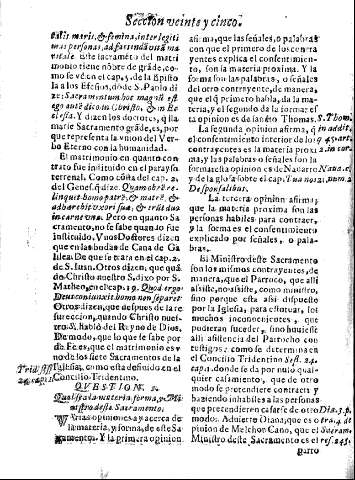 Seccion veinte y cinco.
talis maris, & femina, inter legiti
mas personas, ad
vitæ. Este sacramento del matri
monio tiene nõbre de grãde, como
se vè en el cap. 5. de la Episto
la a los Efesios, dõde S. Pablo di
ze: Sacramentum hoc magnũ est
ego autẽ dico in Christo, & in Ec
clesia. Y dizen los doctores, q̃ lla
marse Sacramento grãde, es, por
que representa la vniõn del Ver-
bo Eterno con la humanidad.
El matrimonio en quanto con
trato fue instituido en el paraiso
terrenal. Como cõsta del cap. 2.
del Genes. q̃ dize. Quam obrẽ re-
linquet homo patrẽ, & matrẽ, &
adhærebit vxori suæ, & erũt duo
in carne vna. Pero en quanto Sa
cramento, no se sabe quando fue
instituido. Vnos Doctores dizen
que en las bodas de Cana de Ga
lilea. De que se trata en el cap. 2.
de S. Iuan. Otros dizen, que quã
do Christo nuestro S. dixo por S.
Matheo, en el cap. 19. Quod ergo
Deus coniunxit homo non separet
Otros dizen, que despues de la re
surreccion, quando Christo nues-
tro S. habló del Reyno de Dios.
De modo, que lo que se sabe por
de Fè es, que el matrimonio es v
no de los siete Sacramentos de la
Iglesia, como esta definido en el
Concilio Tridentino.
Trid. sess.
24. can. 1.
QUESTION. 2.
Qual sea la materia, forma, y Mi
nistro deste Sacramento.
Varias opiniones ay acerca de
la materia, y forma, de este Sa
cramento. Y la primera opinion
afirma, que las señales, o palabras
con que el primero de los contra
yentes explica el consentimien-
to, son la materia proxima. Y la
forma son las palabras, o señales
del otro contrayente, de manera,
que el q̃ primero habla, da la ma-
teria, y el segundo da la forma: es
ta opinion es de santo Thomas.
S. Thom.
La segunda opinion afirma, q̃
el consentimiento interior de los
contrayentes es la materia proxi
ma, y las palabras o señales son la
forma: esta opinion es de Navarro
y de la glosa sobre el cap. Tua nos
De sponsalibus.
in addit.
q. 45. art.
2. in cor.
Nava. c.
21. num. 2
La tercera opinion afirma;
que la materia proxima son las
personas habiles para contraer,
y la forma es el consentimiento
explicado por señales, o pala-
bras.
El Ministro deste Sacramento
son los mismos contrayentes, de
manera, que el Parroco, que alli
asiste, no asiste, como ministro,
sino porque esta assi dispuesto
por la Iglesia, para estoruar, los
muchos inconuenientes, que
pudieran suceder, sino huuiesse
alli asistencia del Parrocho con
testigos: como se determina en
el Concilio Tridentino Sess. 24.
cap. 1. donde se da por nulo qual-
quier casamiento, que de otro
modo se pretendiere contraer; y
haziendo inhabiles a las personas
que pretendieren casarse de otro
modo: Aduierte Diana, que es o
pinion de Melchor Cano, que el
Ministro deste Sacramento es el
Dia. 3. p.
tra. 4. de
Sacram.
res. 245.
parro